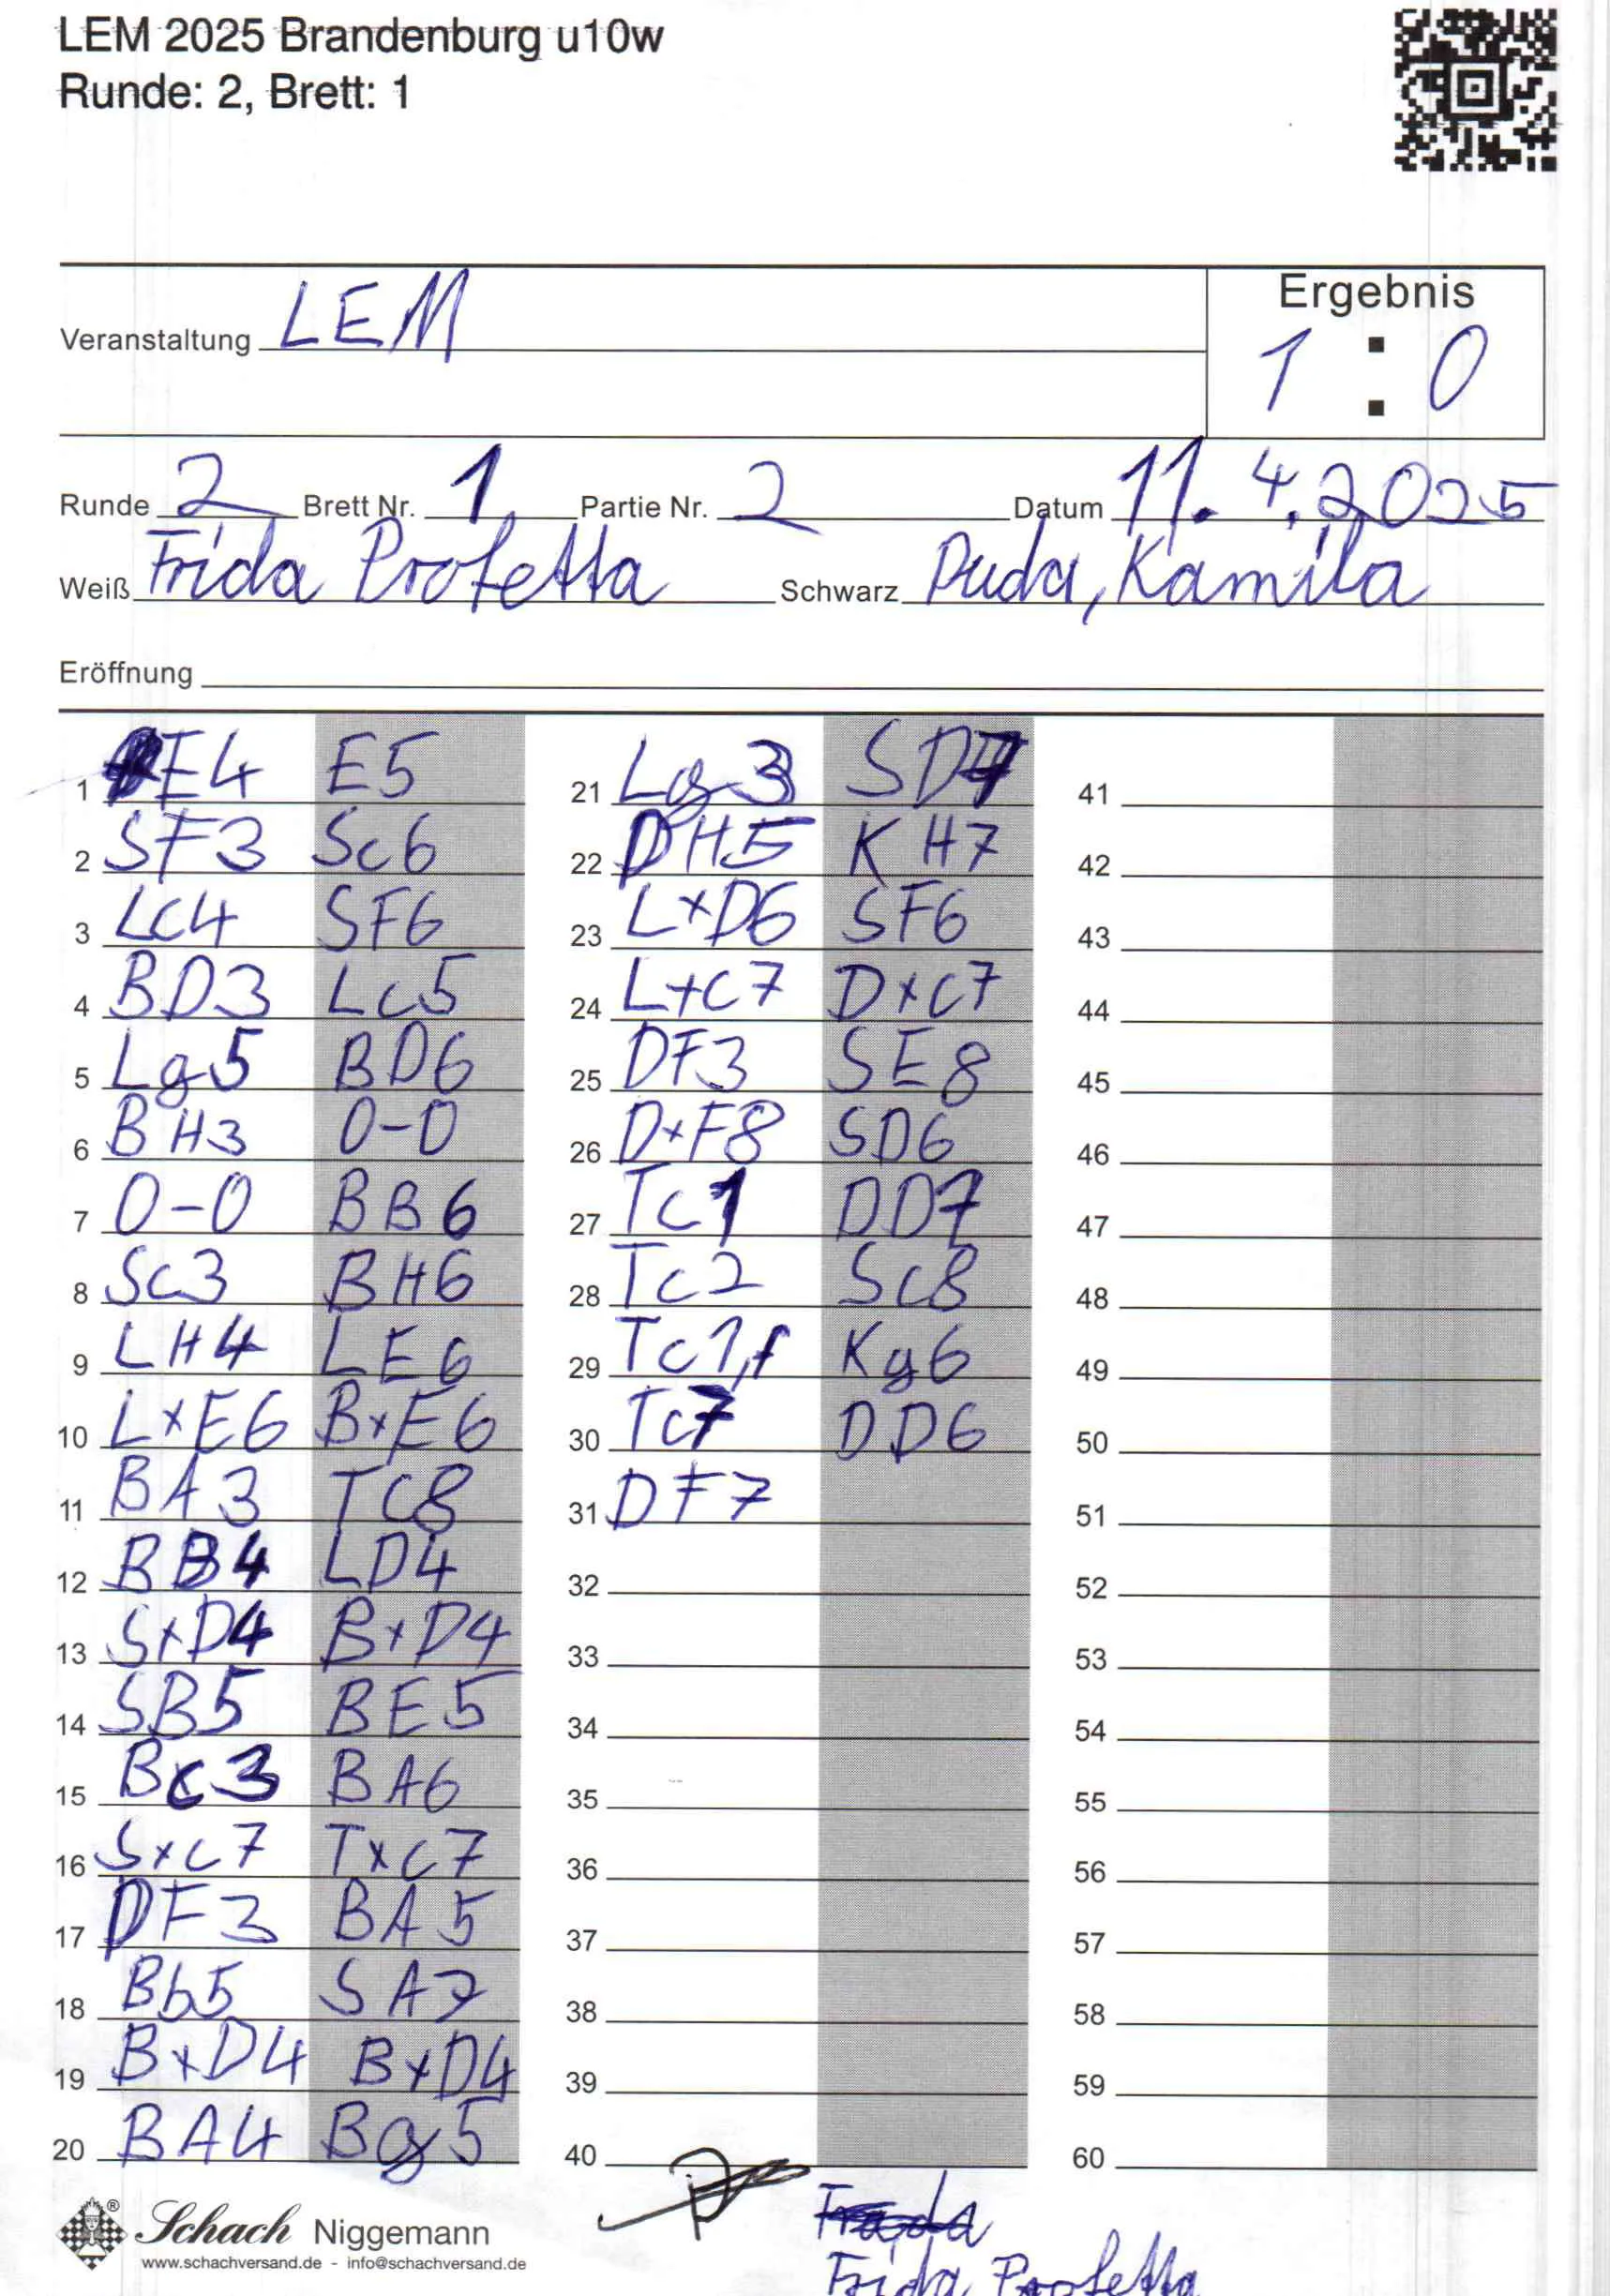 LEM 2025 Brandenburg u10w
Runde: 2, Brett: 1
Ergebnis
Veranstaltung LEM
1 : 0
Runde 2 Brett Nr. 1 Partie Nr. 2 Datum 11.4.2025
Weiß Frida Profetta Schwarz Duda, Kamila
Eröffnung
1 E4 E5
2 SF3 Sc6
3 Lc4 SF6
4 BD3 Lc5
5 Lg5 BD6
6 BH3 0-0
7 0-0 BB6
8 Sc3 BH6
9 LH4 LE6
10 L×E6 B×E6
11 BA3 TC8
12 BB4 LD4
13 S×D4 B×D4
14 SB5 BE5
15 Bc3 BA6
16 S×c7 T×c7
17 DF3 BA5
18 Bb5 SA7
19 B×D4 B×D4
20 BA4 Bg5
21 Lg3 SD7
22 DH5 KH7
23 L×D6 SF6
24 L×C7 D×C7
25 DF3 SE8
26 D×F8 SD6
27 Tc1 DD7
28 Tc2 Sc8
29 Tc1,f Kg6
30 Tc7 DD6
31 DF7
32
33
34
35
36
37
38
39
40
41
42
43
44
45
46
47
48
49
50
51
52
53
54
55
56
57
58
59
60
Schach Niggemann
www.schachversand.de - info@schachversand.de
Frida Profetta